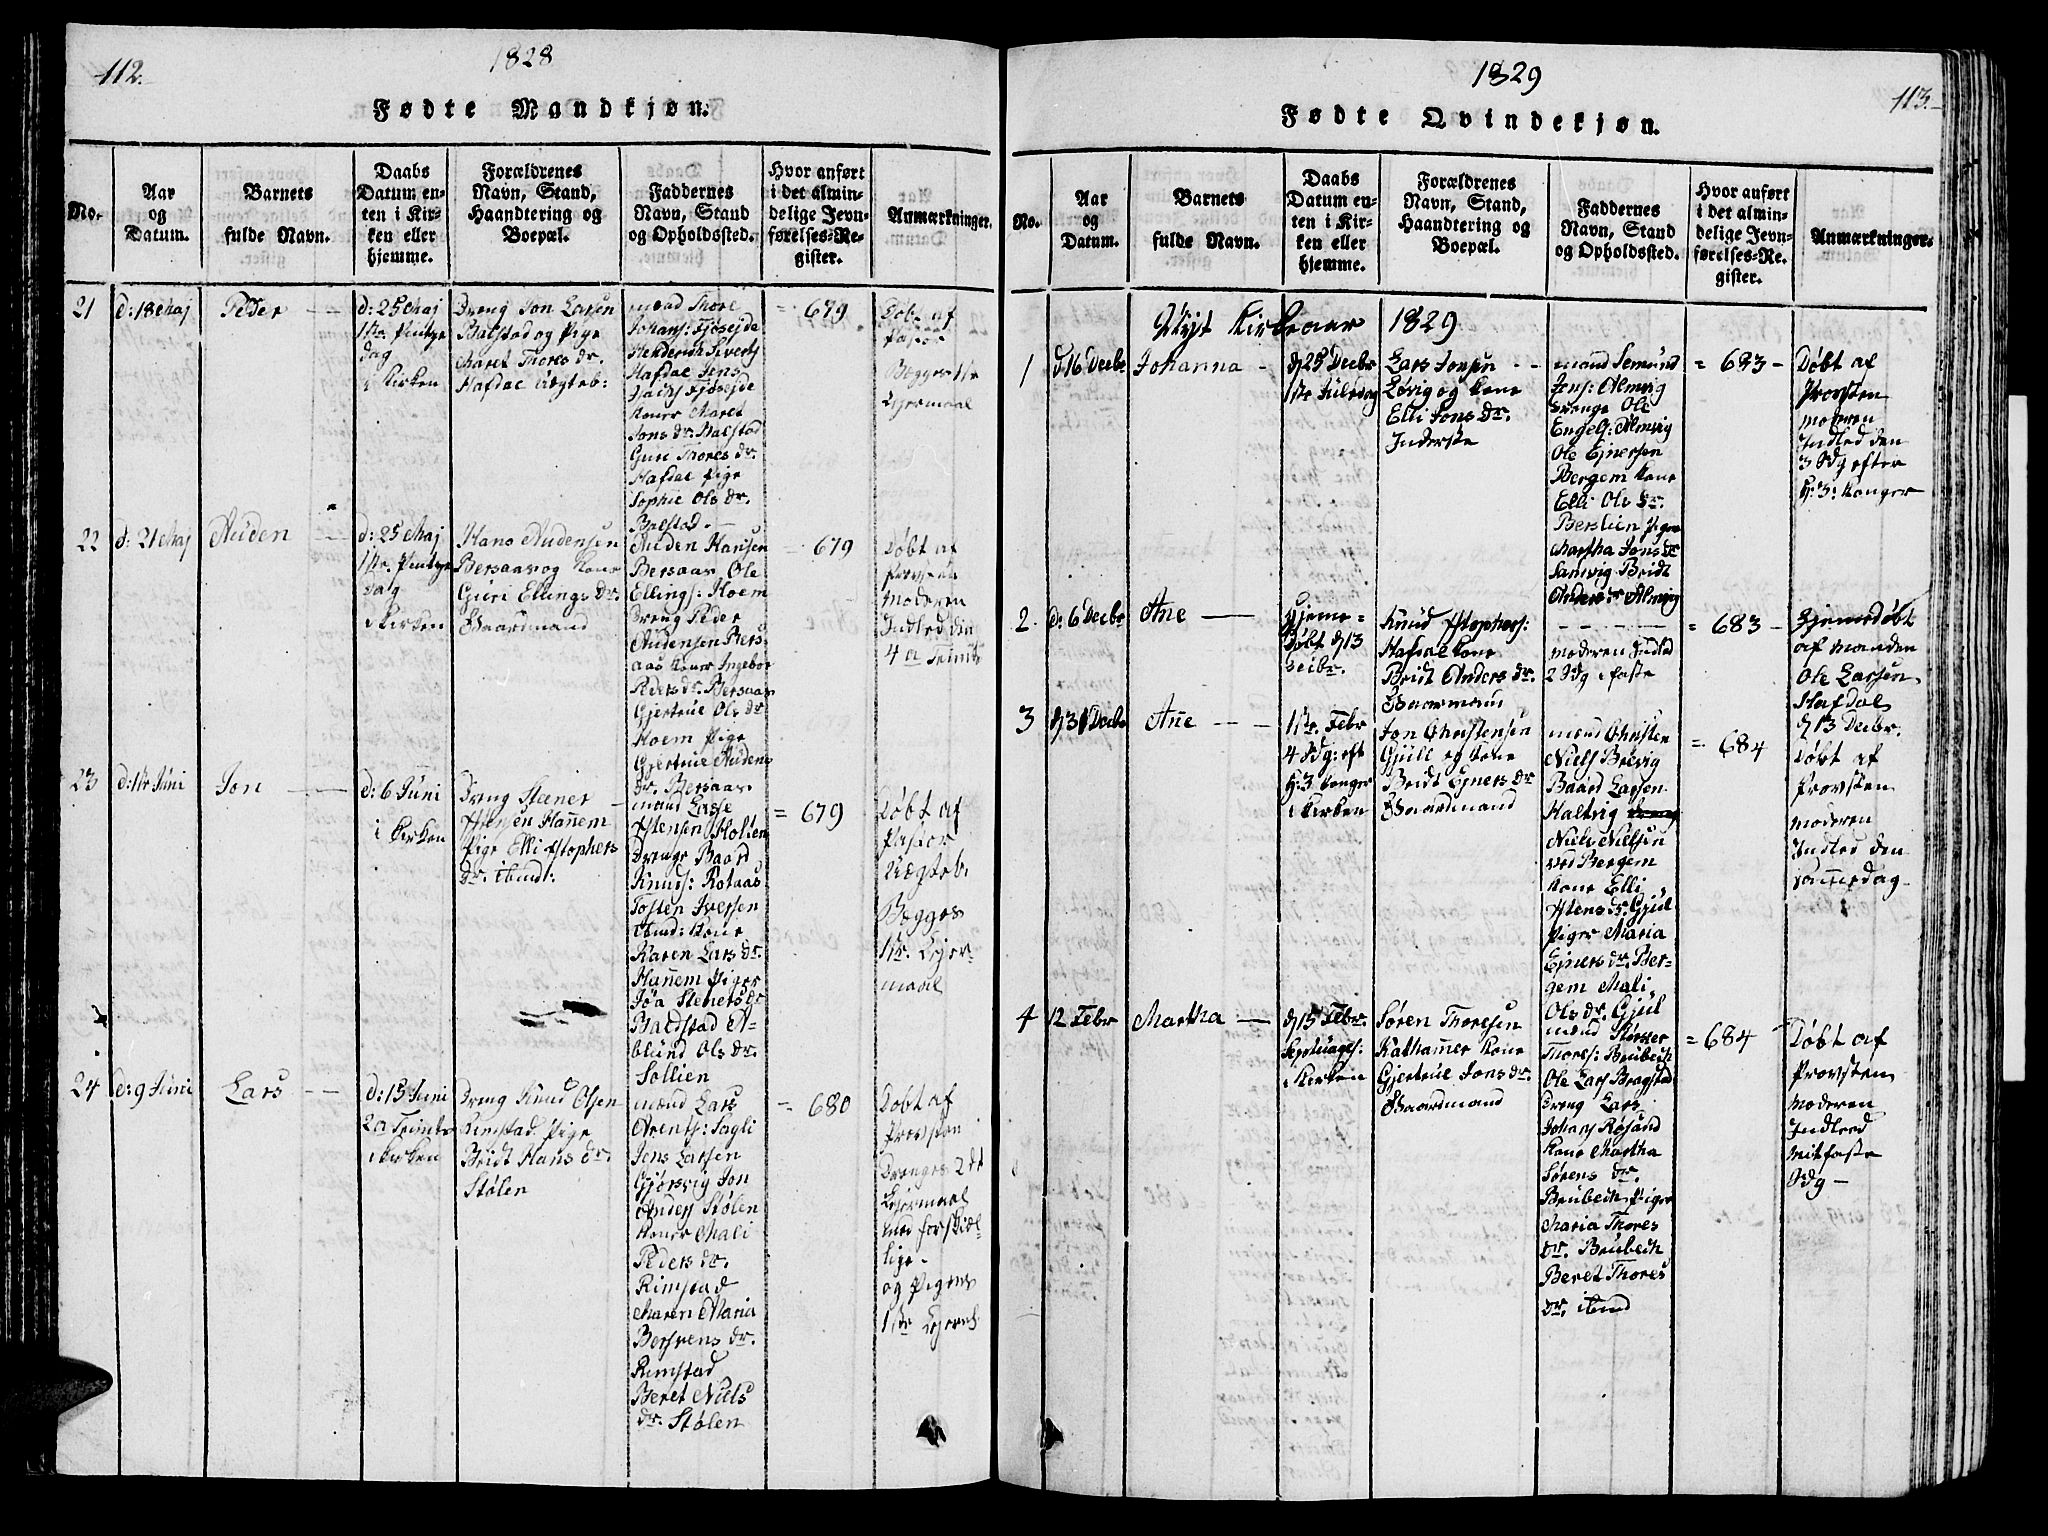 112.
1828
Fødte Mandkjøn.
No.
Aar
og
Datum.
Barnets
fulde Navn.
Daabs
Datum en-
ten i Kir-
ken eller
hjemme.
Forældrenes
Navn, Stand,
Haandtering og
Boepæl.
Faddernes
Navn, Stand
og Opholdssted.
Hvor anført
i det almin-
delige Jevn-
førelses-Re-
gister.
Anmærkninger.
21
d: 18 Maj
Peder
d: 25 Maj
1ste Pintse
dag
i Kirken
Dreng Jon Larsen
Balstad og Pige
Maret Thores dr.
Hafdal Uægteb:
mænd Thore
Johans: Fjøsejde
Henderich Siverts
Hafdal Jens
Jachs Fjøsejde
Koner Maret
Jons dr. Balstad
Guri Thores dr.
Hafdal Pige
Sophie Ols dr.
Balstad.
= 679
Døbt af
Pastor
Begges 1ste
Lejermaal
22
d: 21 Maj
Auden
d: 25 Maj
1ste Pintse
dag
i Kirken
Hans Audensen
Bersaas og Kone
Guri Ellings dr.
Gaardmand
Auden Hansen
Bersaas Ole
Ellings: Hoem
Dreng Peder
Audensen Bers-
aas Koner Ingebor
Peders dr. Bersaas
Gjertrue Ols dr
Hoem Pige
Gjertrue Audens
dr. Bersaas
= 679
Døbt af
Provsten
Moderen
Indled den
4 a Trinit
23
d: 1ste Juni
Jon
d: 6 Juni
i Kirken
Dreng Steener
Istensen Hanem
Pige Elli Istophers
dr. ibmd:
mænd Lasse
Istensen Holten
Drenge Baard
Knuds: Rotaas
Tosten Iversen
ibmd: Kone
Karen Lars dr.
Hanem Piger
Jøa Steners dr
Baldstad A-
blund Ols dr.
Sollien
= 679
Døbt af
Pastor
Uægteb.
Begges
1ste Lejer-
maal
24
d: 9 Juni
Lars
d: 15 Juni
2 a Trinits
i Kirken
Dreng Knud Olsen
Rimstad Pige
Bridt Hans dr.
Stølen
mænd Lars
Arents: Sagli
Jens Larsen
Gjørsvig Jon
Anders Stølen
Koner Mali
Peders dr.
Rimstad
Maren Maria
Bersvens dr.
Rimstad
Beret Niels
dr. Stølen
= 680
Døbt af
Provsten
Drenges 2det
Lejermaal
med forskiel-
lige-
og Pigens
1ste Lejerml.
1829
113.
Fødte Qvindekjøn.
No.
Aar
og
Datum.
Barnets
fulde Navn.
Daabs
Datum en-
ten i Kir-
ken eller
hjemme.
Forældrenes
Navn, Stand,
Haandtering og
Boepæl.
Faddernes
Navn, Stand
og Opholdssted.
Hvor anført
i det almin-
delige Jevn-
førelses-Re-
gister.
Anmærkninger.
Nyt Kirkeaar 1829
1
d 16 Decbr
Johanna
d 25 Decbr
1ste Juledag
Lars Jonsen
Løvig og Kone
Elli Jons dr.
Inderste
mænd Semund
Jons: Almvig
Drenge Ole
Engels: Almvig
Ole Ejnersen
Bergem Kone
Elli Ols dr.
Berslien Piger
Martha Jons dr
Sandvig Bridt
Anders dr Almvig
= 683 -
Døbt af
Provsten
moderen
Indled den
3 Sdg efter
h: 3: Konger
2
d: 6 Decbr
Ane
Hjeme-
døbt d 13
Decbr.
Knud Istophers:
Hafdal Kone
Bridt Anders dr.
Gaarmand
moderen Indled
2 Sdg i faste
= 683 -
Hjemedøbt
af manden
Ole Larsen
Hafdal
d 13 Decbr.
3
d 31 Decbr
Ane
1ste Febr
4 Sdg: eft
h: 3 Konger
i Kirken
Jon Christensen
Gjull og Kone
Bridt Ejners dr
Gaardmand
mænd Christen
Niels Brevig
Baard Larsen
Haltvig
Niels Nielsen
Bergem
Kone Elli
Istens dr. Gjul
Piger Maria
Ejners dr. Ber-
gem Mali
Ols dr. Gjul
= 684
Døbt af
Provsten
moderen
Indled den
samedag
4
12 Febr
Martha
d 15 Febr.
Septuages:
i Kirken
Søren Thoresen
Kathamer Kone
Gjertrue Jons dr.
Gaardmand
mænd Størker
Thores: Brubech
Ole Lars Bragstad
Dreng Lars
Johans Røsand
Kone Martha
Sørens dr.
Brubech Piger
Maria Thores
dr. Brubech
Beret Thores
dr. ibmd
= 684
Døbt af
Provsten
moderen
Indleed
mitfaste
Sdg -